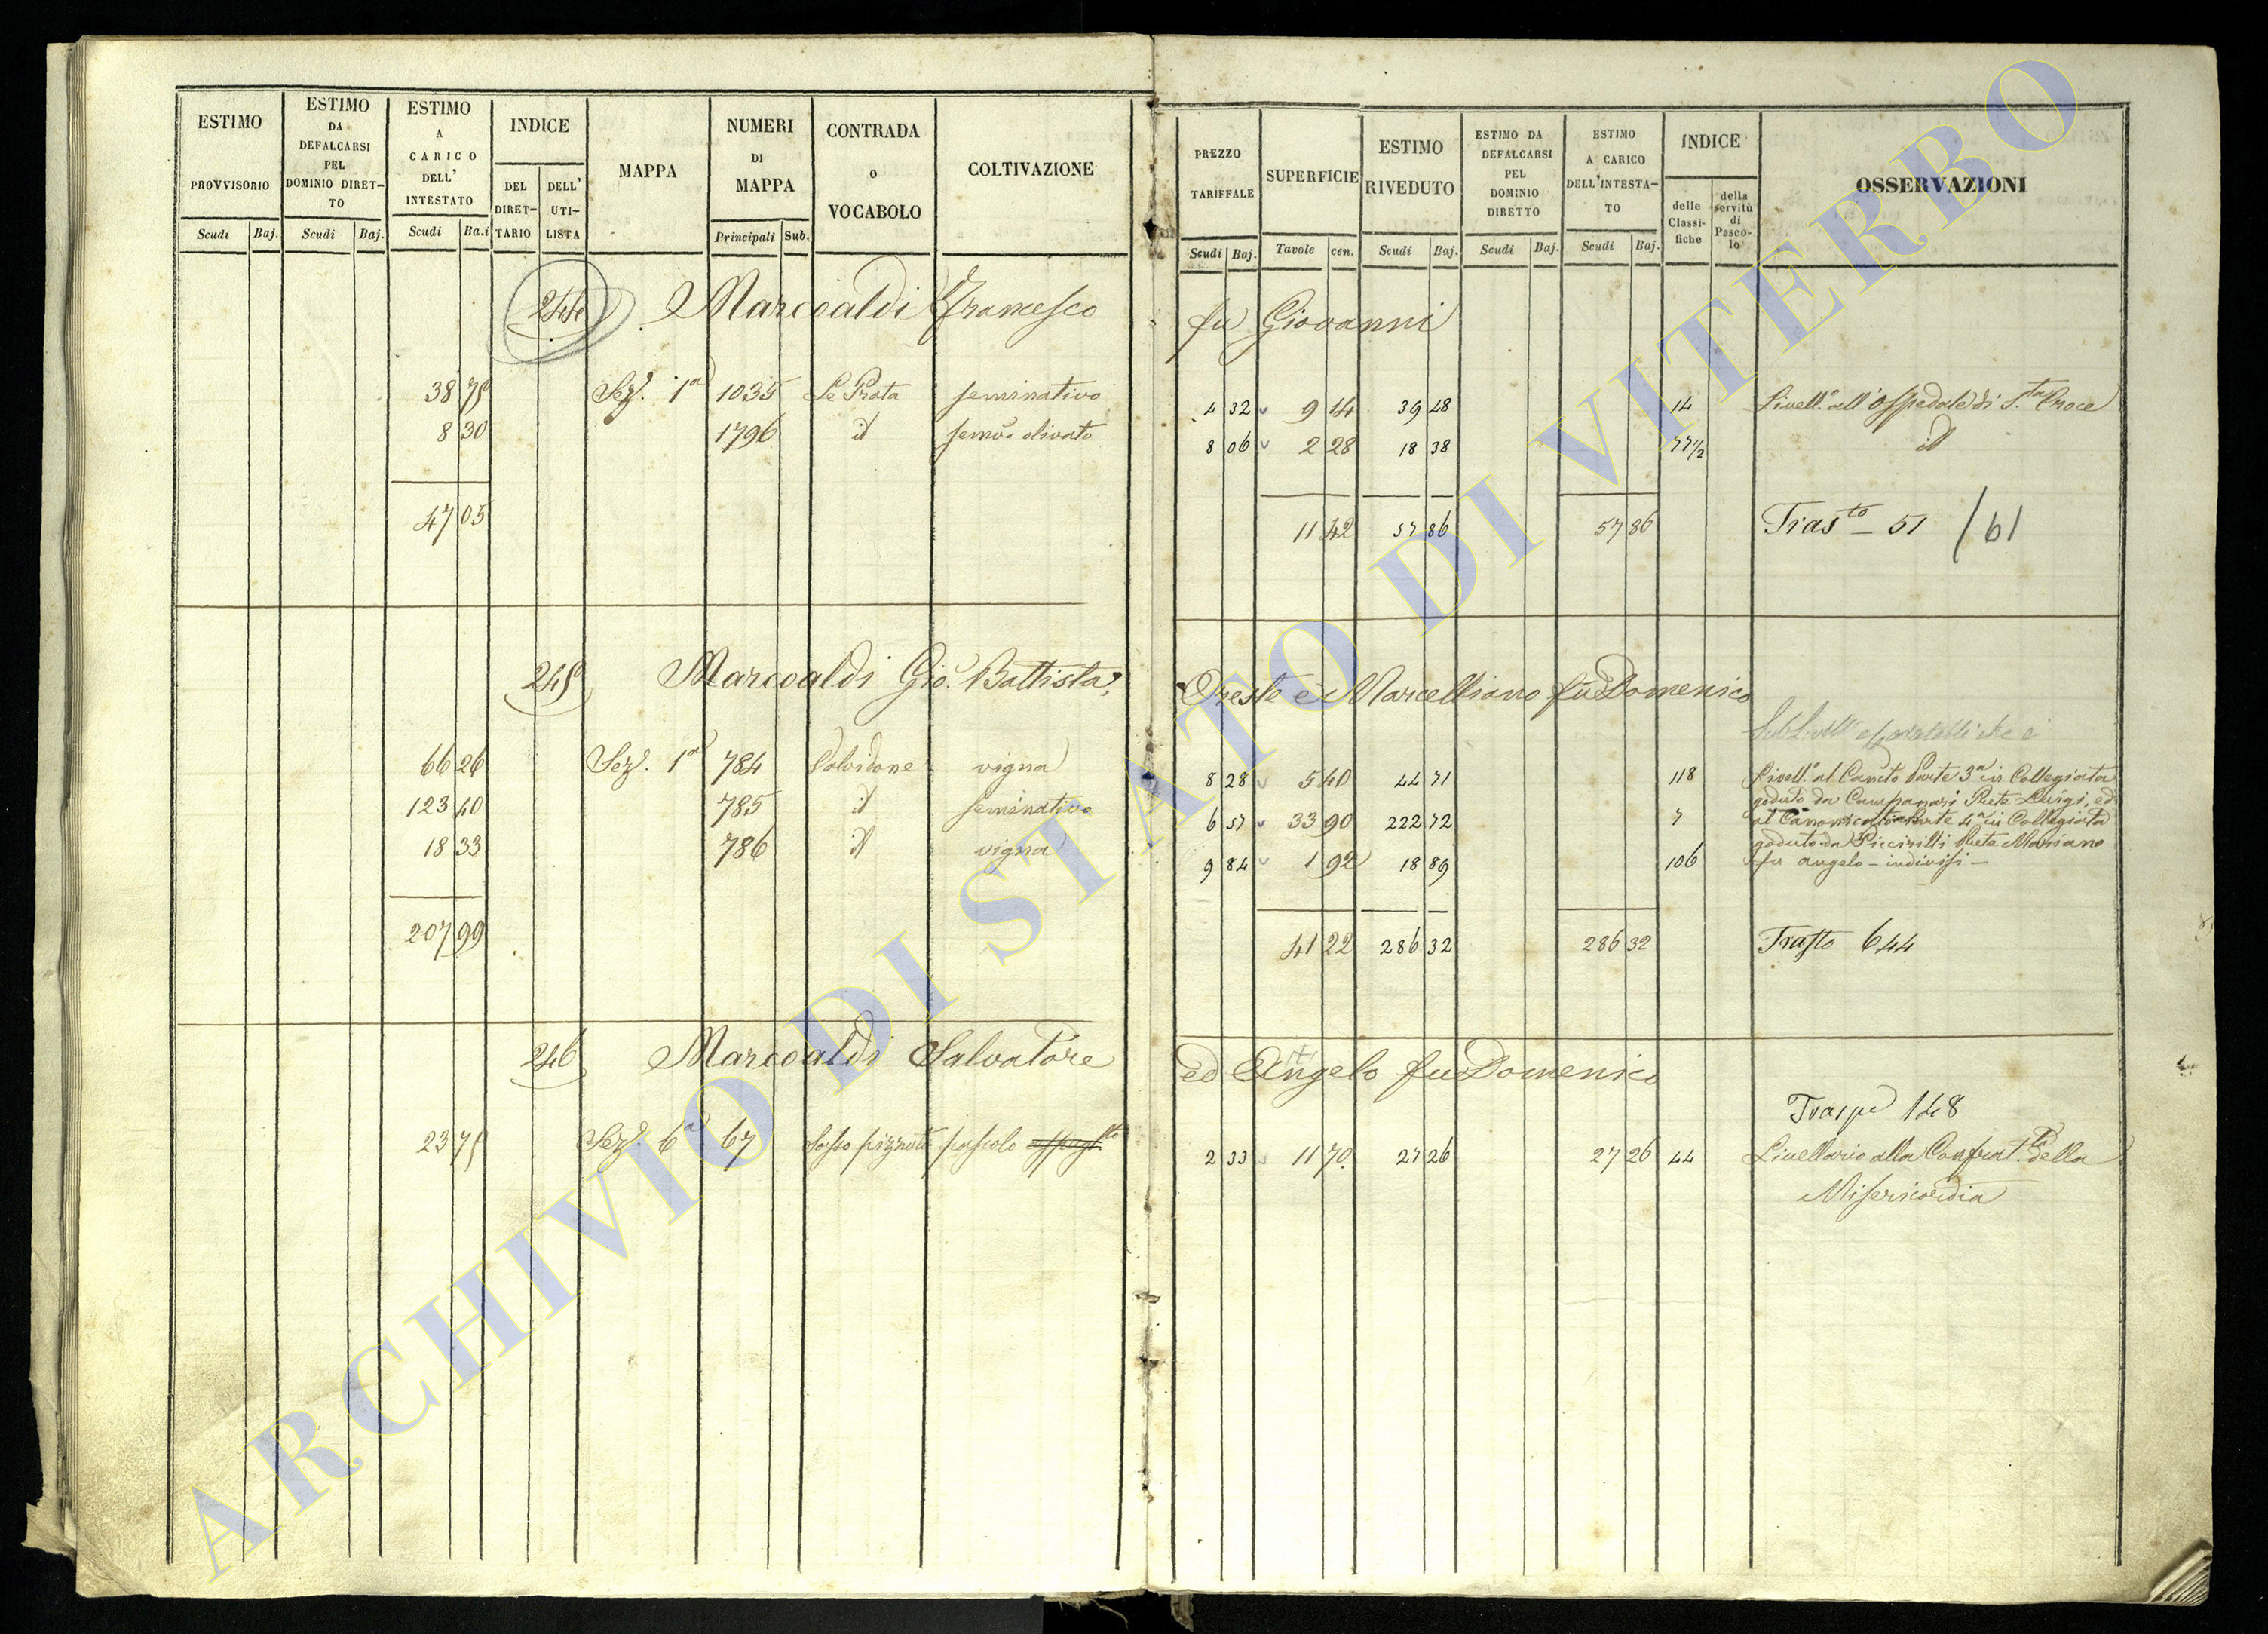 ESTIMO PROVVISORIO
ESTIMO DA DEFALCARSI PEL DOMINIO DIRET-TO
ESTIMO A CARICO DELL' INTESTATO
INDICE
DEL DIRET-TARIO
DELL' UTI-LISTA
MAPPA
NUMERI DI MAPPA
CONTRADA o VOCABOLO
COLTIVAZIONE
Scudi Baj. Scudi Baj. Scudi Ba.i Principali Sub.
PREZZO TARIFFALE
SUPERFICIE
ESTIMO RIVEDUTO
ESTIMO DA DEFALCARSI PEL DOMINIO DIRETTO
ESTIMO A CARICO DELL'INTESTA-TO
INDICE
delle Classi-fiche
della servitù di Pasco-lo
OSSERVAZIONI
Scudi Baj. Tavole cen. Scudi Baj. Scudi Baj. Scudi Baj.
244 Marcoaldi Francesco fu Giovanni
38 75 Sez. 1a 1035 Le Prata seminativo 4 32 9 14 39 48 14 Livell.o all'Ospedale di S.ta Croce
8 30 1796 id semo olivato 8 06 2 28 18 38 77 1/2 id
47 05 11 42 57 86 57 86 Tras.to 51 /61
245 Marcoaldi Gio. Battista, Oreste e Marcelliano fu Domenico
66 26 Sez. 1a 784 Salvidone vigna 8 28 5 40 44 71 118 Livell.o al Canto Parte 3a in Collegiata
goduto da Campanari Prete Luigi, ed
123 40 785 id seminativo 6 57 33 90 222 72 7 al Canonicato Parte 4a in Collegiata
goduto da Piccirilli Prete Mariano
18 33 786 id vigna 9 84 1 92 18 89 106 fu angelo - indivisi -
207 99 41 22 286 32 286 32 Trasto 644
246 Marcoaldi Salvatore ed Angelo fu Domenico
Traspo 148
23 75 Sez. 6a 67 Sasso pizzuto pascolo 2 33 11 70 27 26 27 26 44 Livellario alla Confrat. della
Misericordia
ARCHIVIO DI STATO DI VITERBO